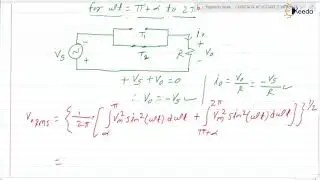 for ωt = π+α to 2π
Ekeeda
T₁
T₂
i₀
Vs
R
V₀
+Vs + V₀ = 0
∴ V₀ = -Vs
i₀ = V₀/R = -Vs/R
V₀rms = { 1/2π [ ∫_α^π Vm² sin²(ωt) dωt + ∫_{π+α}^{2π} Vm² sin²(ωt) dωt ] }^{1/2}
=